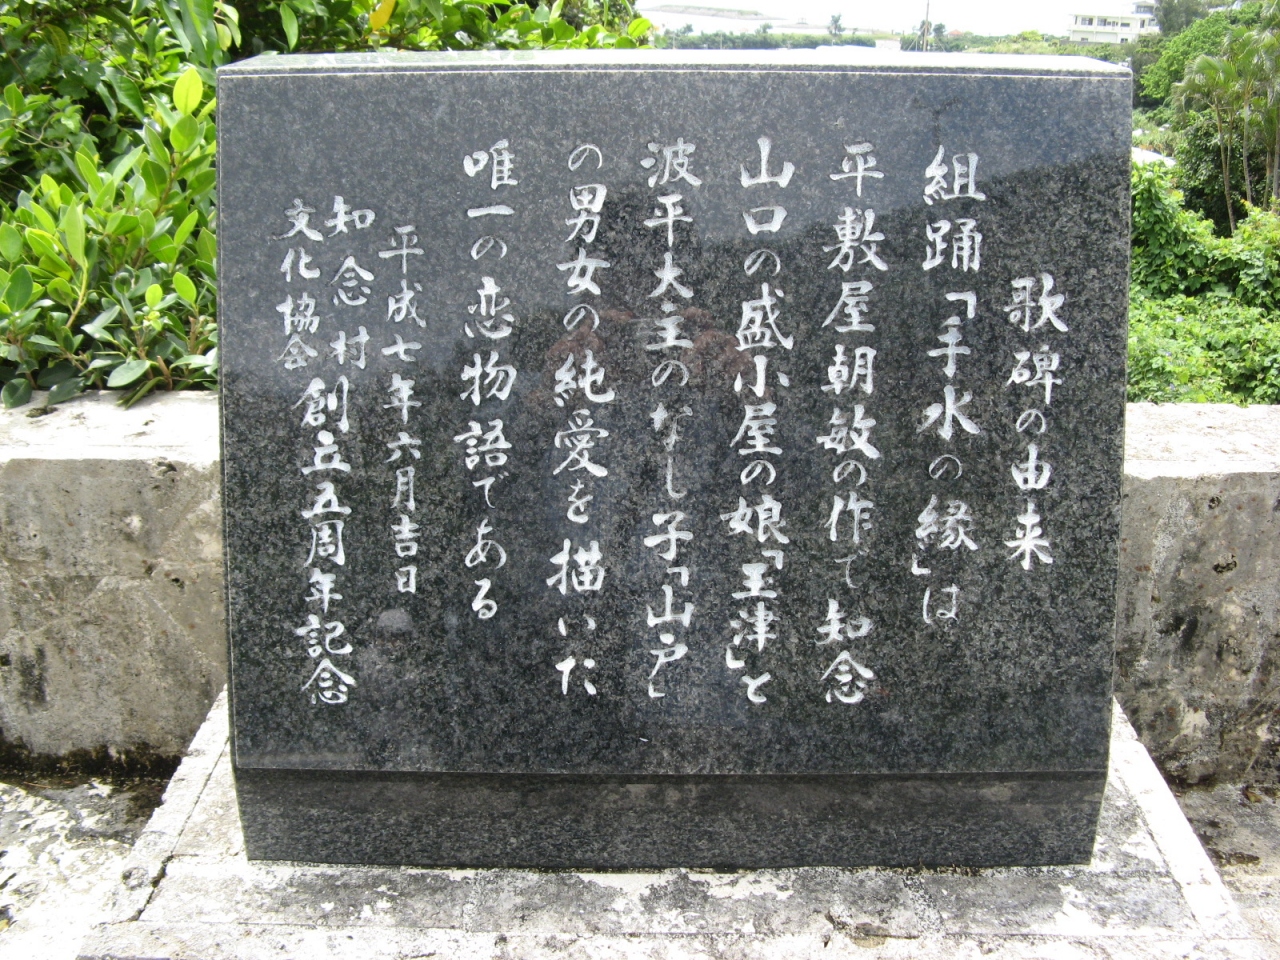 歌碑の由来
組踊「手水の縁」は
平敷屋朝敏の作で知念
山口の盛小屋の娘「玉津」と
波平大主のなし子「山戸」
の男女の純愛を描いた
唯一の恋物語である
平成七年六月吉日
知念村
文化協会
創立五周年記念